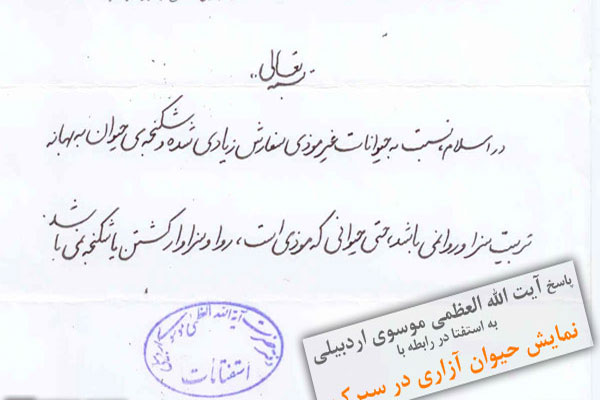 بسمه تعالی
در اسلام، نسبت به حیوانات غیر موذی سفارش زیادی شده و شکنجه‌ی حیوان به بهانه
تربیت سزا و روا نمی باشد، حتی حیوانی که موذی است، روا و سزاوار کشتن یا شکنجه نمی باشد
دفتر حضرت آیة الله العظمی
استفتائات
پاسخ آیت الله العظمی موسوی اردبیلی
به استفتا در رابطه با
نمایش حیوان آزاری در سیرک